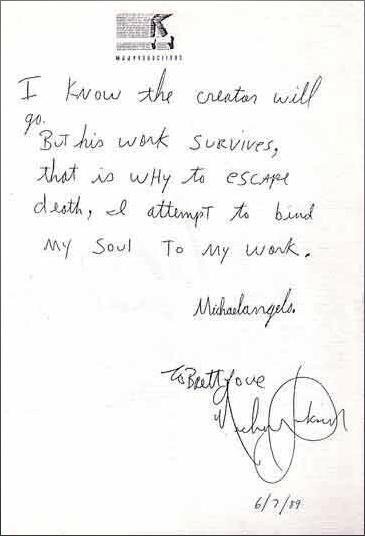 MJJ PRODUCTIONS
I KNOW the creator will
go.
But his work SURVIVES,
that is WHY to ESCAPE
death, I attempt to bind
MY SOUL TO MY WORK.
Michaelangelo.
To Brett Love
Michael Jackson
6/7/89